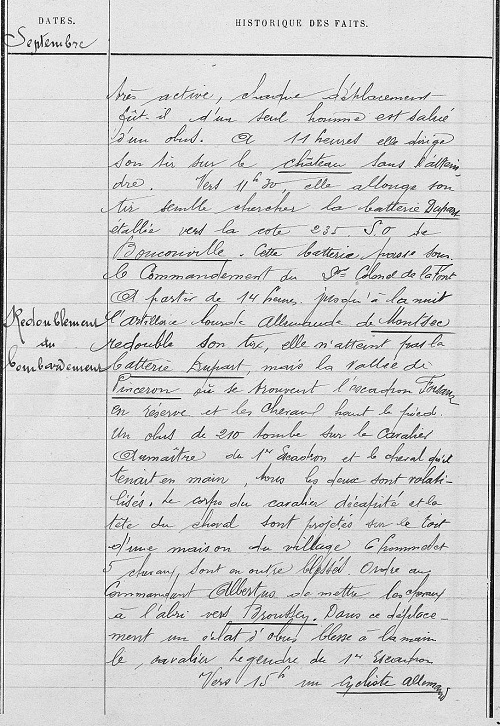 DATES.
HISTORIQUE DES FAITS.
Septembre
très active, chaque déplacement
fût-il d'un seul homme est salué
d'un obus. A 11 heures elle dirige
son tir sur le château sans l'attein
dre. Vers 11h30, elle allonge son
tir semble chercher la batterie Dupart
établie vers la cote 235 SO de
Bouconville. Cette batterie passe sous
le Commandement du Colonel de la Font
A partir de 14 heures jusqu'à la nuit
Redoublement
du
bombardement
l'artillerie lourde Allemande de Montsec
redouble son tir, elle n'atteint pas la
batterie Dupart, mais la vallée de
Pinceron où se trouvent l'escadron
en réserve et les chevaux haut le pied.
Un obus de 210 tombe sur le Cavalier
Dumaître du 1er Escadron et le cheval qu'il
tenait en main, tous les deux sont volati-
lisés. Le corps du cavalier décapité et la
tête du cheval sont projetés sur le toit
d'une maison du village 6 hommes et
5 chevaux, sont en outre blessés. Ordre au
Commandant Albertus de mettre les chevaux
à l'abri vers Broussey. Dans ce déplace-
ment un éclat d'obus blesse à la main
le cavalier Legendre du 1er Escadron
Vers 15h un Cycliste Allemand